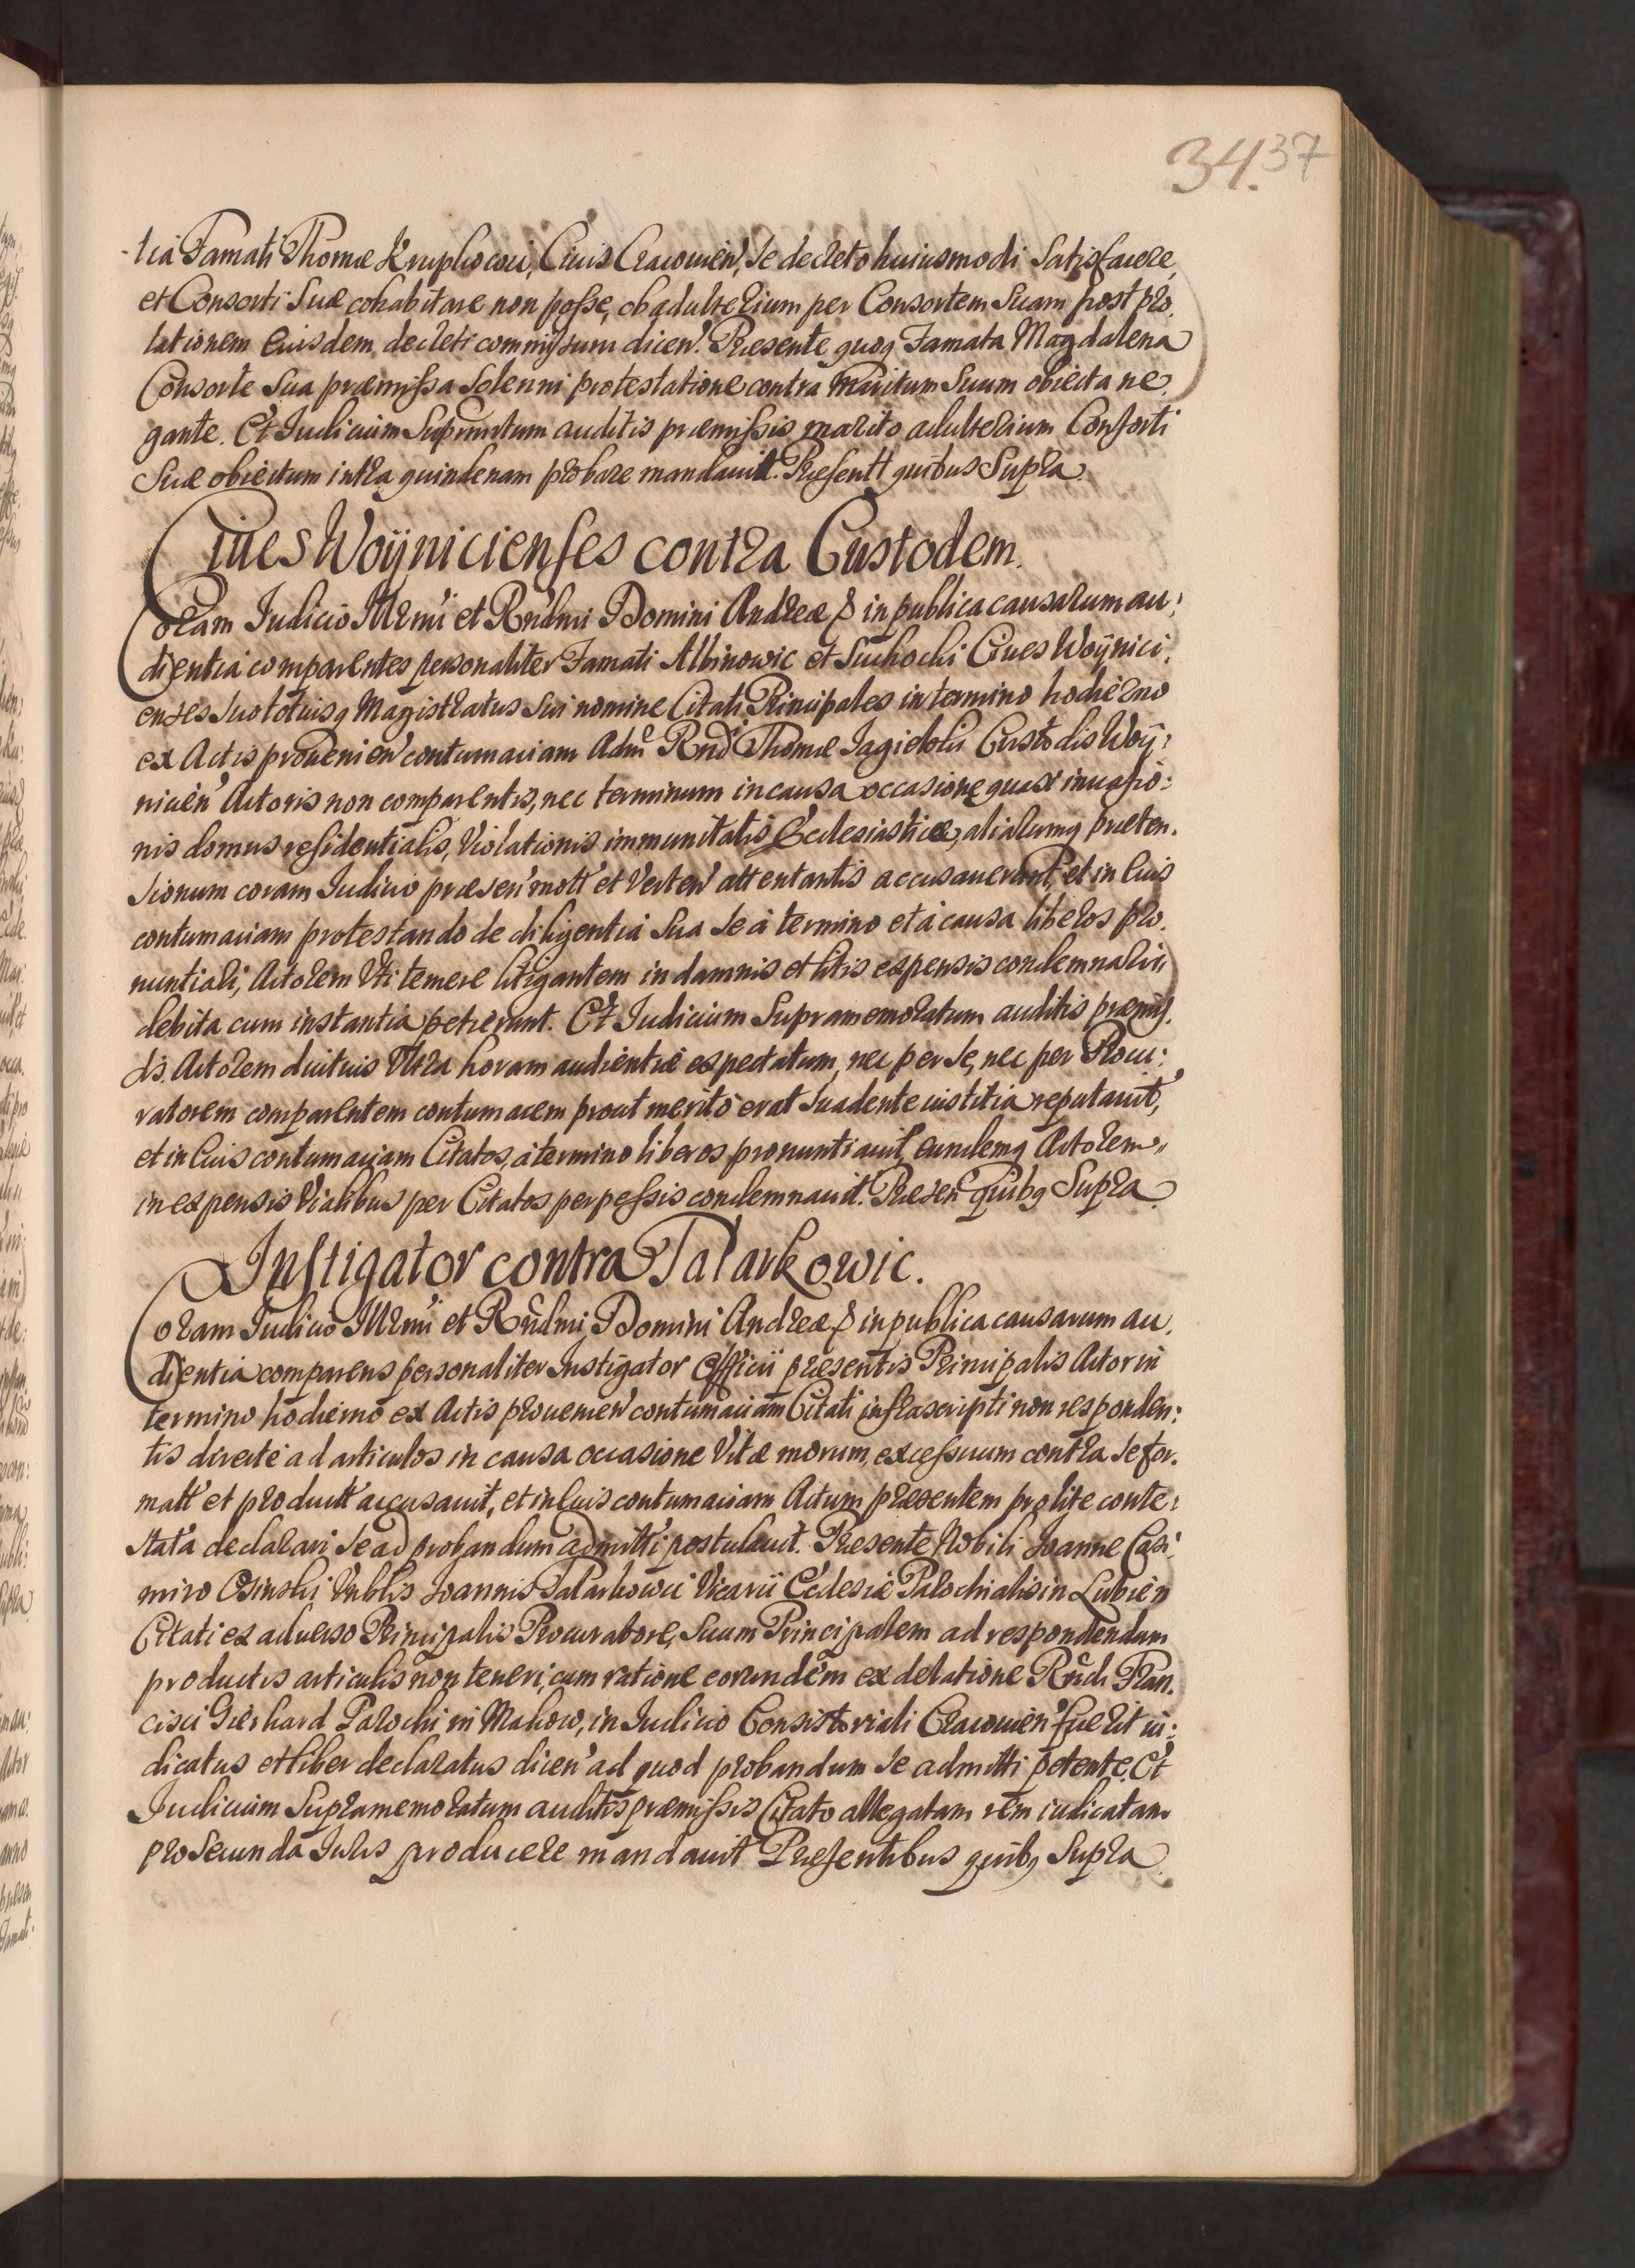 34. 37
tia Famati Thomæ Krupkowic, Ciuis Cracouien', se decreto huiusmodi satisfacere,
et Consorti suæ cohabitare non posse, ob adulterium per Consortem suam post pro,
lationem eiusdem decreti commissum dicen'. Præsente quoq Famata Magdalena
Consorte sua præmissa solenni protestatione contra Maritum suum obiecta ne,
gante. Et Iudicium Suprmtum auditis præmissis marito adulterium Consorti
suæ obiectum intra quindenam probare mandauit. Præsentt quibus Supra.
Ciues Woÿnicienses contra Custodem.
Coram Iudicio Illrmi et Rndmi Domini Andreæ & in publica causarum au:
dientia comparentes personaliter Famati Albinowic et Suchocki Ciues Woÿnici,
enses suo totiusq Magistratus sui nomine Citati Principales in termino hodierno
ex Actis prouenien' contumaciam Adm Rndi Thomæ Jagielski Custodis Woÿ:
nicien' Actoris non comparentis, nec terminum in causa occasione quasi inuasio:
nis domus residentialis, Violationis immunitatis Ecclesiasticæ, aliarumq præten,
sionum coram Iudicio præsen' mott' et Verten' attentantis accusauerunt, et in Eius
contumaciam protestando de diligentia sua se à termino et à causa liberos pro,
nuntiari, Actorem Vti temere litigantem in damnis et litis expensis condemnari
debita cum instantia petierunt. Et Iudicium Supramemoratum auditis præmis,
sis. Actorem diutius Vltra horam audientiæ expectatum, nec per se, nec per Procu:
ratorem comparentem contumacem prout meritò erat suadente iustitia reputauit,
et in Eius contumaciam Citatos, à termino liberos pronuntiauit, eundemq Actorem
in expensis Vialibus per Citatos perpessis condemnauit. Præsen' quibq Supra.
Instigator contra Tatarkowic.
Coram Iudicio Illrmi et Rndmi Domini Andreæ & in publica causarum au,
dientia comparens personaliter Instigator Officii præsentis Principalis Actor in
termino hodierno ex Actis prouenien' contumaciam Citati infrascripti non responden:
tis directè ad articulos in causa occasione Vitæ morum, excessuum contra se for,
matt' et productt' accusauit, et in Eius contumaciam Actum præsentem pro lite conte:
stata declarari se ad probandum admitti postulauit. Præsente Nobili Joanne Casi,
miro Osinski Vnblis Joannis Tatarkowic Vicarii Ecclesiæ Parochialis in Lubień
Citati ex aduerso Principalis Procuratore, suum Principalem ad respondendum
productis articulis non teneri, cum ratione eorundem ex delatione Rndi Fran,
cisci Gierhard Parochi in Makow, in Iudicio Consistoriali Cracouien' fuerit iu:
dicatus et liber declaratus dicen' ad quod probandum se admitti petente. Et
Iudicium Supramemoratum auditis præmissis Citato allegatam rem iudicatam
pro secunda Iuris producere mandauit Præsentibus quibq Supra